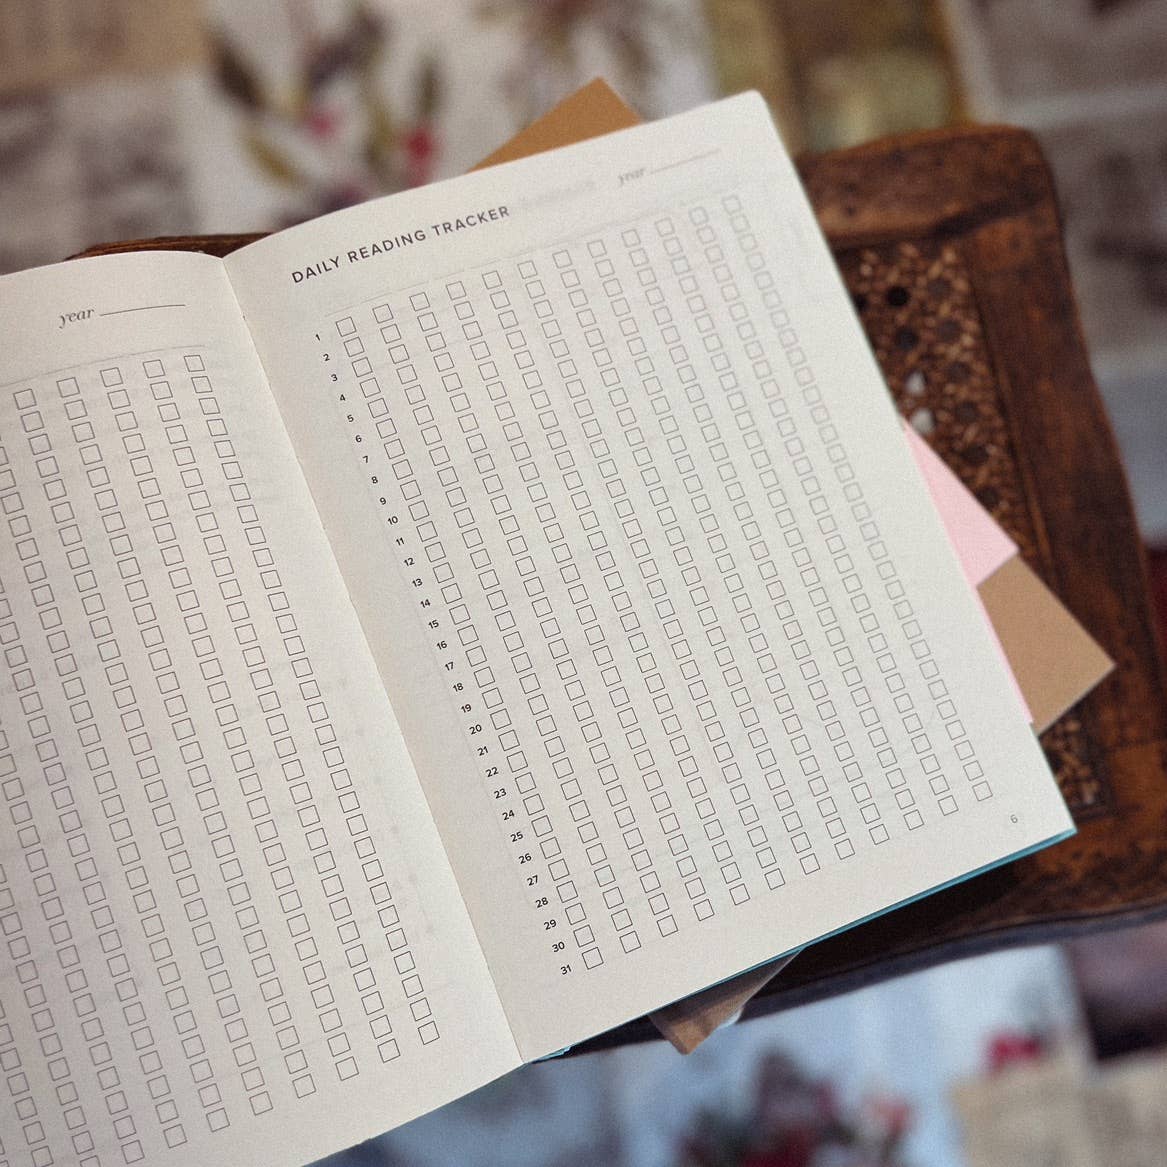 year
DAILY READING TRACKER
year
1
2
3
4
5
6
7
8
9
10
11
12
13
14
15
16
17
18
19
20
21
22
23
24
25
26
27
28
29
30
31
6